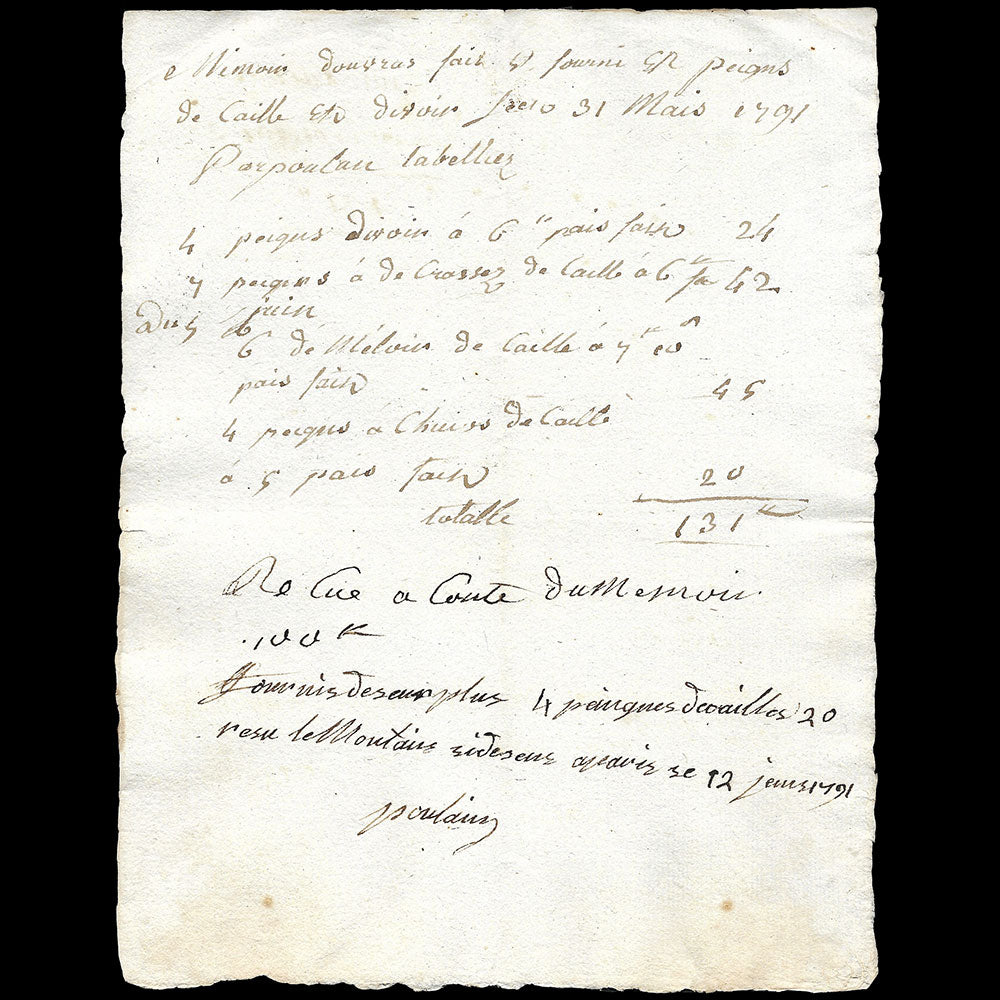 Mémoir douvras fais et fourni En peigns
de Caille En divoir 31 Mais 1791
Parpoulan tabellier
4 peigns divoir à 6 ᵗᵗ pais fain 24
7 peigns à de Crasser de Caille à 6 ᵗᵗ 42
Du 5 juin
6 de Méloir de Caille à 7 ᵗᵗ 10 ˢ
pais fain 45
4 peigns a Chinios de Caille
à 5 pais fain 20
totalle 131 ᵗᵗ
Re Cue a Conte Du Memoir
100 ᵗᵗ
fournis deseur plus 4 paingnes decailles 20
resu le Montans sideseus aparis se 12 1791
poulain